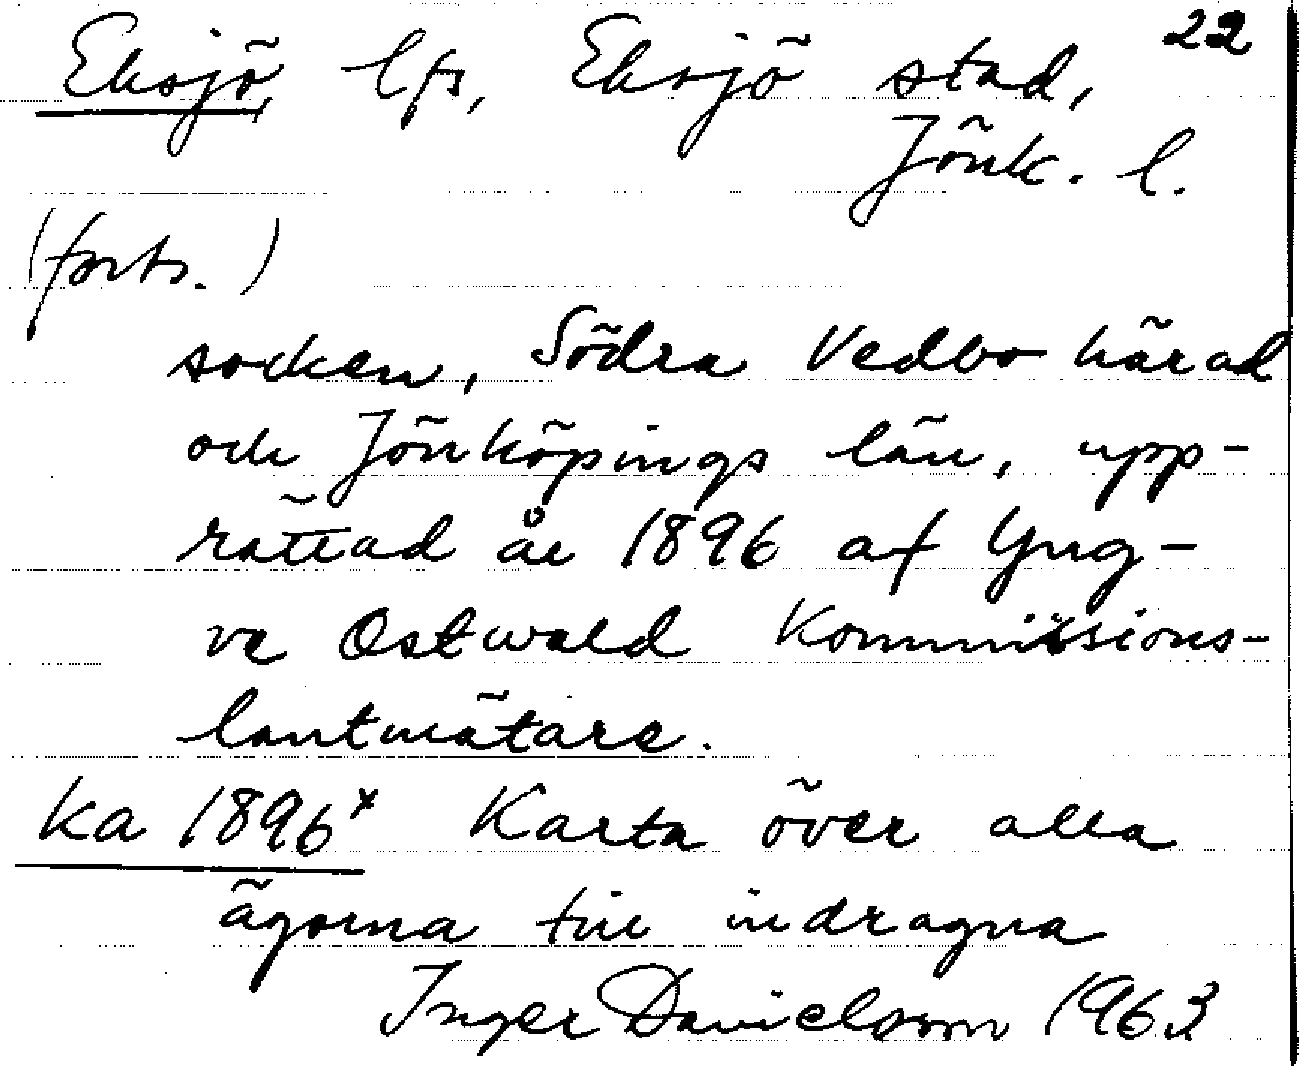 22
Eksjö, lfs, Eksjö stad,
Jönk. l.
(forts.)
socken, Södra Vedbo härad
och Jönköpings län, upp-
rättad år 1896 af Yng-
ve Ostwald Kommissions-
lantmätare.
ka 1896x Karta över alla
ägorna till indragna
Inger Danielsson 1963